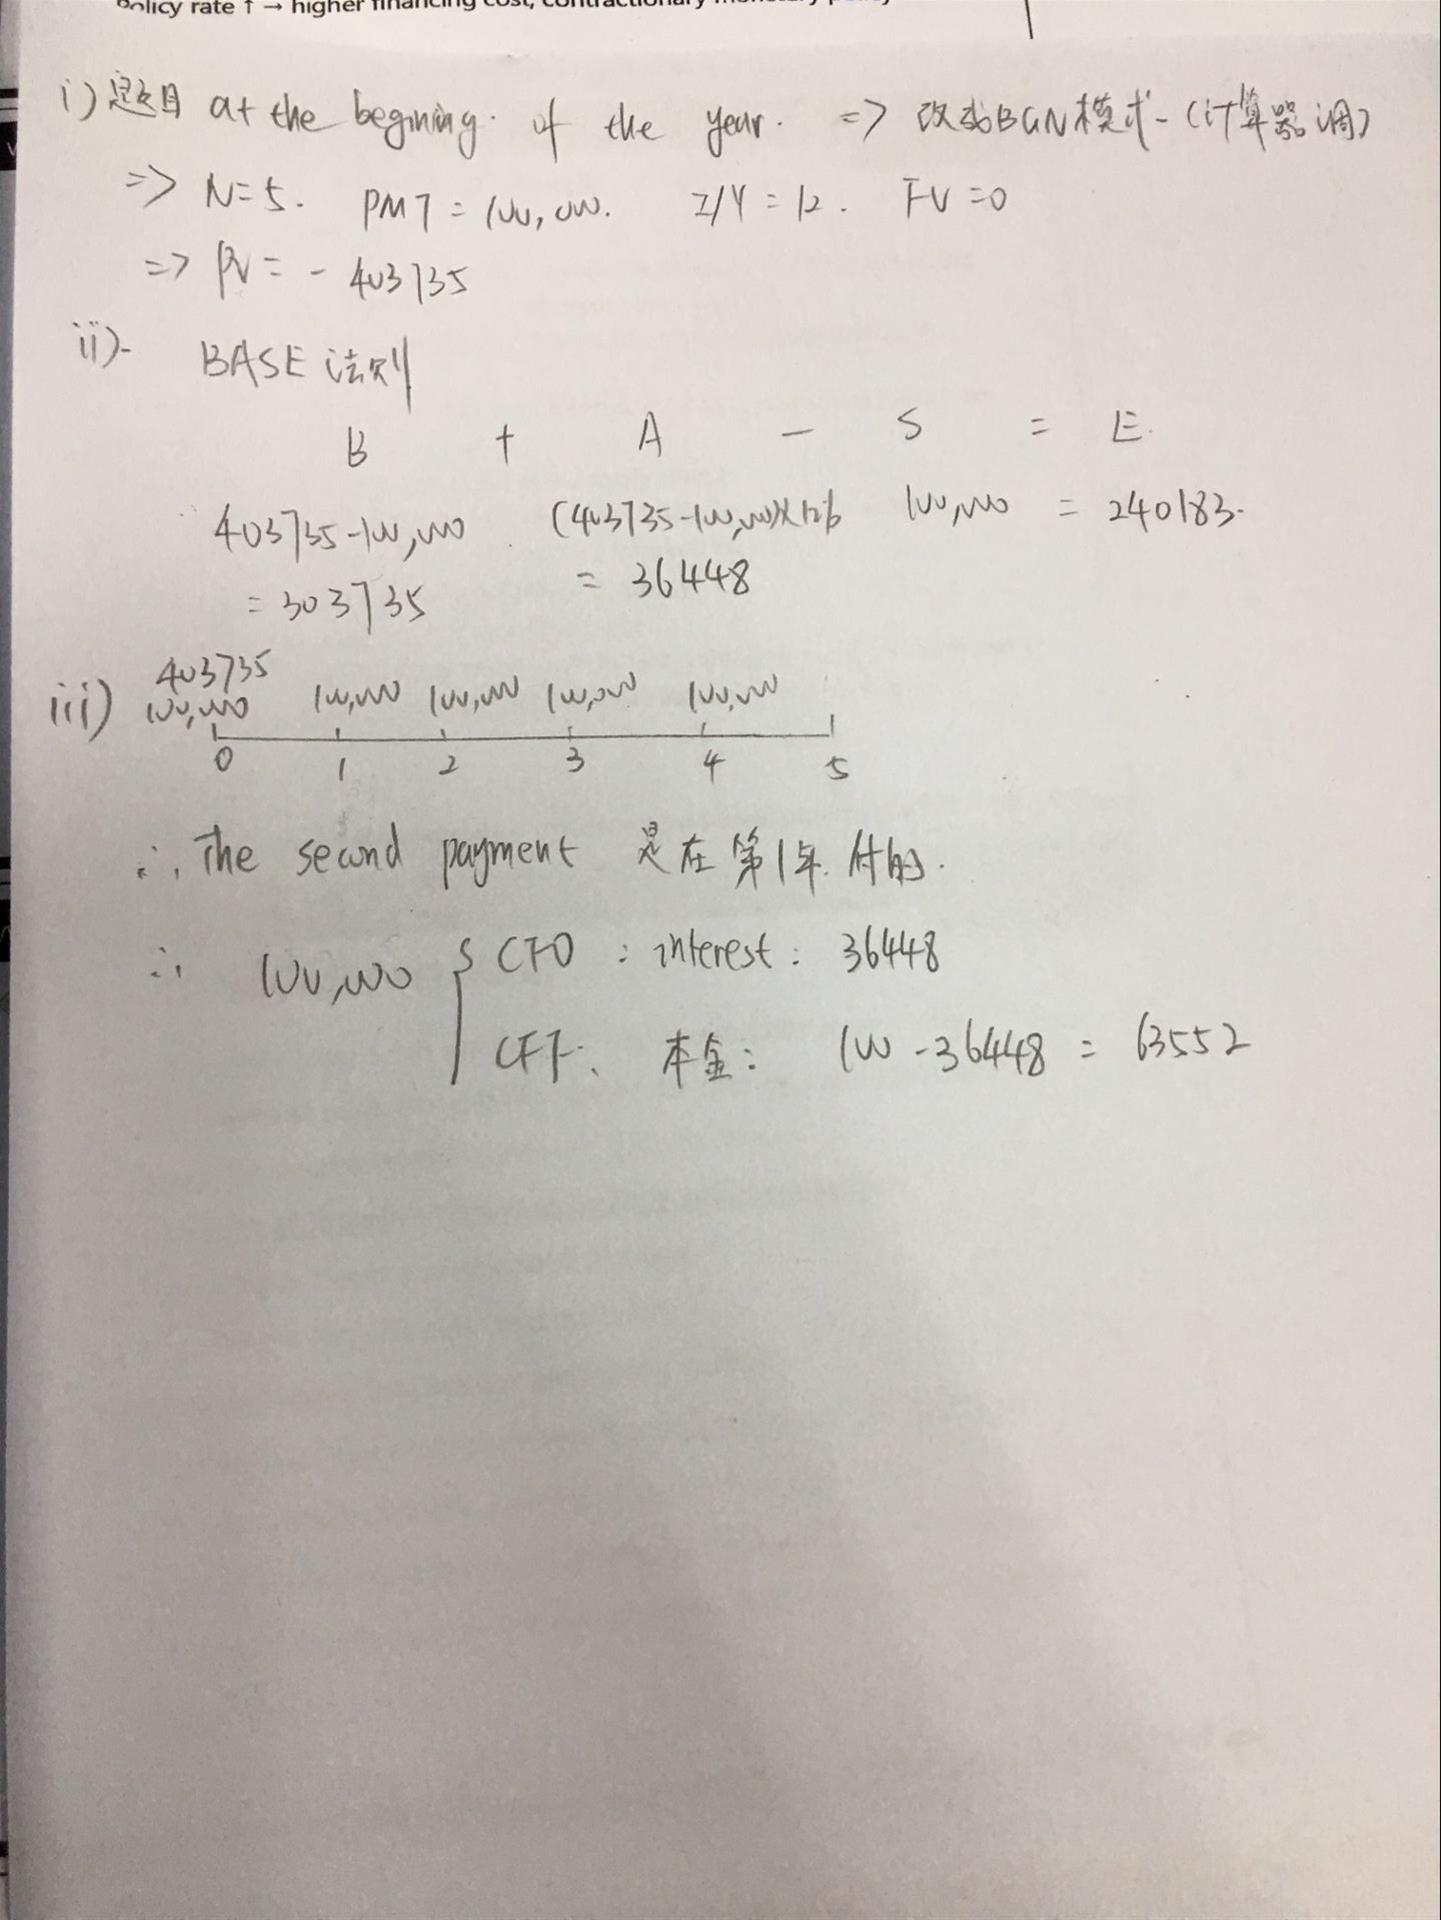 Policy rate ↑ → higher financing cost, contractionary monetary policy
i) 题目 at the beginning. of the year. => 改成BGN模式-(计算器调)
=> N=5. PMT=100,000. I/Y=12. FV=0
=> PV=-403735
ii)- BASE法则
B + A - S = E.
403735-100,000 (403735-100,000)×12% 100,000 = 240183.
=303735 = 36448
403735
iii) 100,000 100,000 100,000 100,000 100,000
0 1 2 3 4 5
∴ The second payment 是在第1年付的.
∴ 100,000 { CFO : interest: 36448
CFF. 本金: 100-36448 = 63552